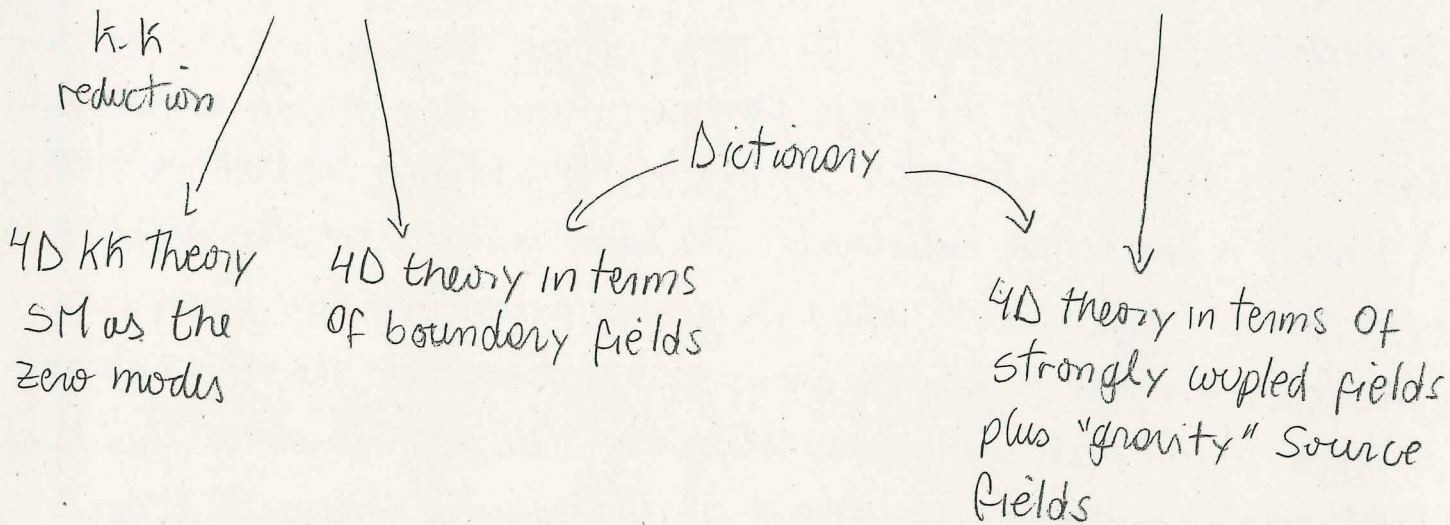 K.K
reduction
Dictionary
4D KK Theory
SM as the
zero modes
4D theory in terms
of boundary fields
4D theory in terms of
strongly coupled fields
plus "gravity" source
fields